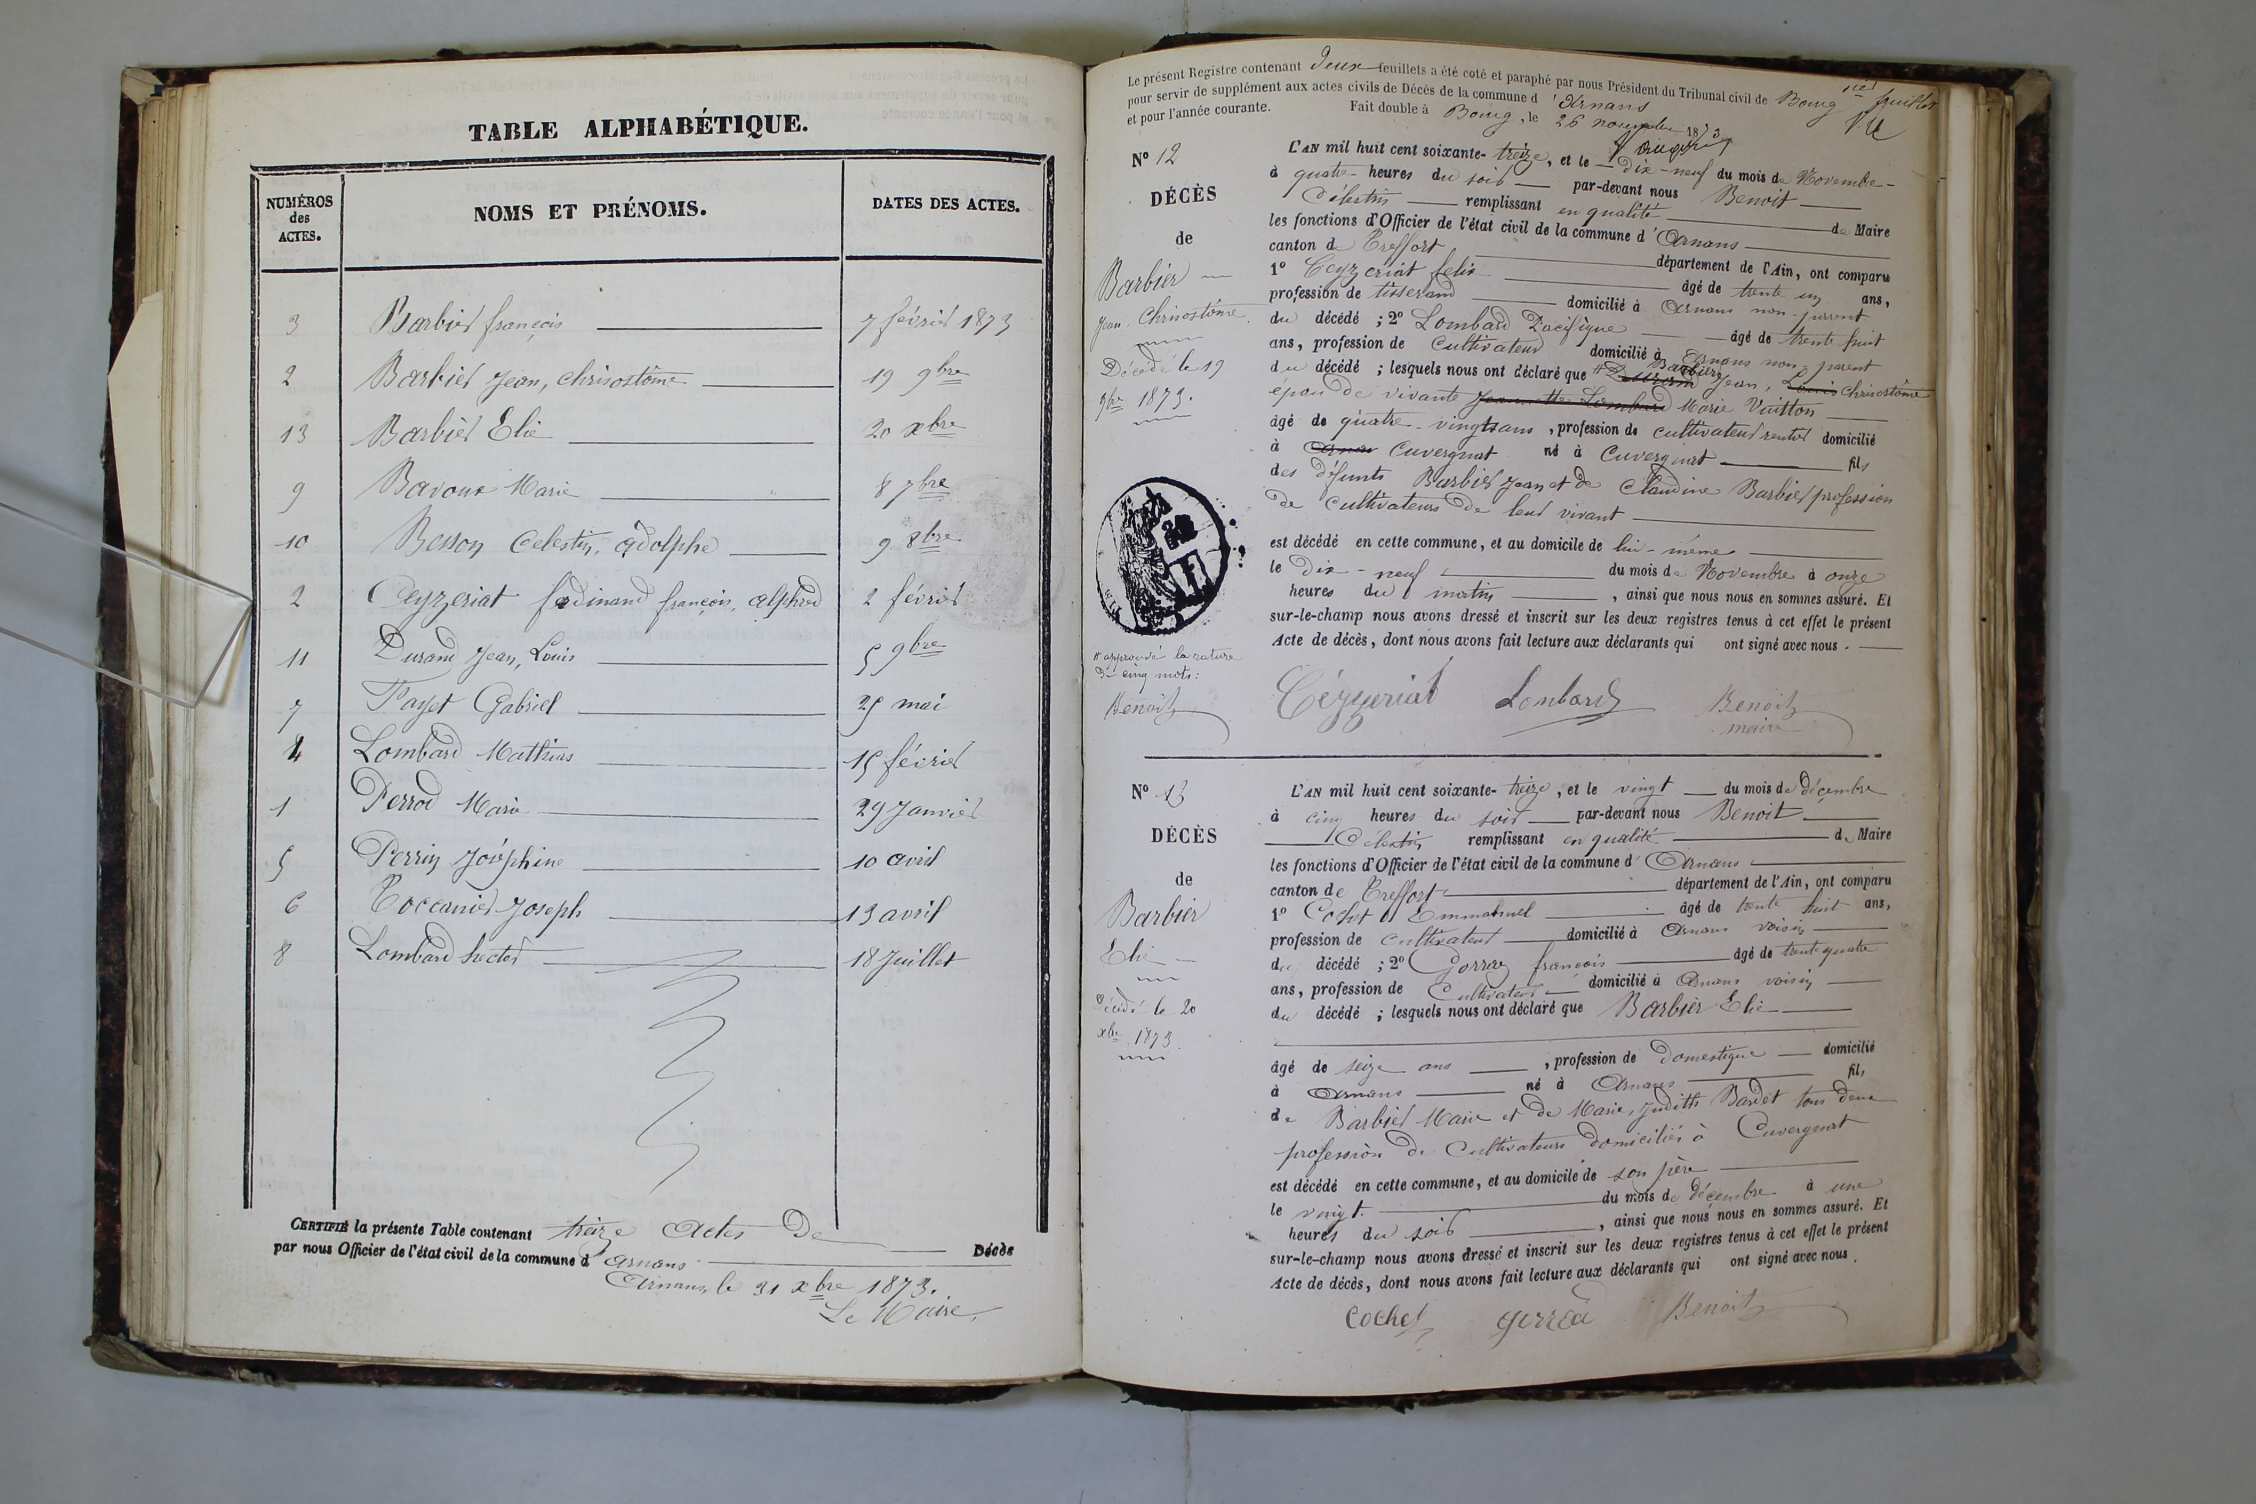 TABLE ALPHABÉTIQUE.
NUMÉROS des ACTES.
NOMS ET PRÉNOMS.
DATES DES ACTES.
3 Barbier françois 7 février 1873
2 Barbier Jean, Chrisostôme 19 9bre
13 Barbier Elie 20 xbre
9 Bavoux Marie 8 7bre
10 Besson Celestin, adolphe 9 8bre
2 Ceyzeriat ferdinand françois, alphred 2 février
11 Durand Jean, Louis 5 9bre
7 Fayet Gabriel 25 mai
4 Lombard Mathias 15 février
1 Perrod Marie 29 Janvier
5 Perrin Joséphine 10 avril
6 Toccanier Joseph 13 avril
8 Lombard hector 18 Juillet
CERTIFIÉ la présente Table contenant treize actes De Décès
par nous Officier de l'état civil de la commune d'arnans
Arnans, le 31 xbre 1873.
Le Maire,
Le présent Registre contenant Deux feuillets a été coté et paraphé par nous Président du Tribunal civil de Bourg
pour servir de supplément aux actes civils de Décès de la commune d'Arnans
et pour l'année courante. Fait double à Bourg, le 26 novembre 1873
feuillet
Nº 12
DÉCÈS
de
Barbier
Jean. Chrisostôme
Décédé le 19
9bre 1873.
L'AN mil huit cent soixante-treize, et le dix-neuf du mois de Novembre
à quatre heures du soir par-devant nous Benoit
Célestin remplissant en qualité de Maire
les fonctions d'Officier de l'état civil de la commune d'Arnans
canton de Treffort département de l'Ain, ont comparu
1º Ceyzeriat felix âgé de trente un ans,
profession de tisserand domicilié à Arnans non-parent
du décédé ; 2º Lombard Pacifique âgé de trente huit
ans, profession de Cultivateur domicilié à Arnans non parent
du décédé ; lesquels nous ont déclaré que Barbier Jean, Louis Chrisostôme
époux de vivante Jeannette Lombard Marie Vuitton
âgé de quatre-vingts ans, profession de cultivateur rentier domicilié
à Arnans Cuvergnat né à Cuvergnat fils
des défunts Barbier Jean et de Claudine Barbier profession
de cultivateurs de leur vivant
est décédé en cette commune, et au domicile de lui-même
le Dix-neuf du mois de Novembre à onze
heures du matin, ainsi que nous nous en sommes assuré. Et
sur-le-champ nous avons dressé et inscrit sur les deux registres tenus à cet effet le présent
Acte de décès, dont nous avons fait lecture aux déclarants qui ont signé avec nous.
approuvé la rature
de cinq mots:
Benoit
Cézzeriat Lombard Benoit
maire
Nº 13
DÉCÈS
de
Barbier
Elie
Décédé le 20
xbre 1873
L'AN mil huit cent soixante-treize, et le vingt du mois de décembre
à cinq heures du soir par-devant nous Benoit
Célestin remplissant en qualité de Maire
les fonctions d'Officier de l'état civil de la commune d'Arnans
canton de Treffort département de l'Ain, ont comparu
1º Cochet Emmanuel âgé de trente huit ans,
profession de cultivateur domicilié à Arnans voisin
du décédé ; 2º Gorraz françois âgé de trente quatre
ans, profession de Cultivateur domicilié à Arnans voisin
du décédé ; lesquels nous ont déclaré que Barbier Elie
âgé de seize ans, profession de domestique domicilié
à Arnans né à Arnans fils
de Barbier Marie et de Marie, Judith Bardet tous deux
profession de Cultivateurs domiciliés à Cuvergnat
est décédé en cette commune, et au domicile de son père
le vingt du mois de décembre à une
heures du soir, ainsi que nous nous en sommes assuré. Et
sur-le-champ nous avons dressé et inscrit sur les deux registres tenus à cet effet le présent
Acte de décès, dont nous avons fait lecture aux déclarants qui ont signé avec nous.
Cochet gorréa Benoit